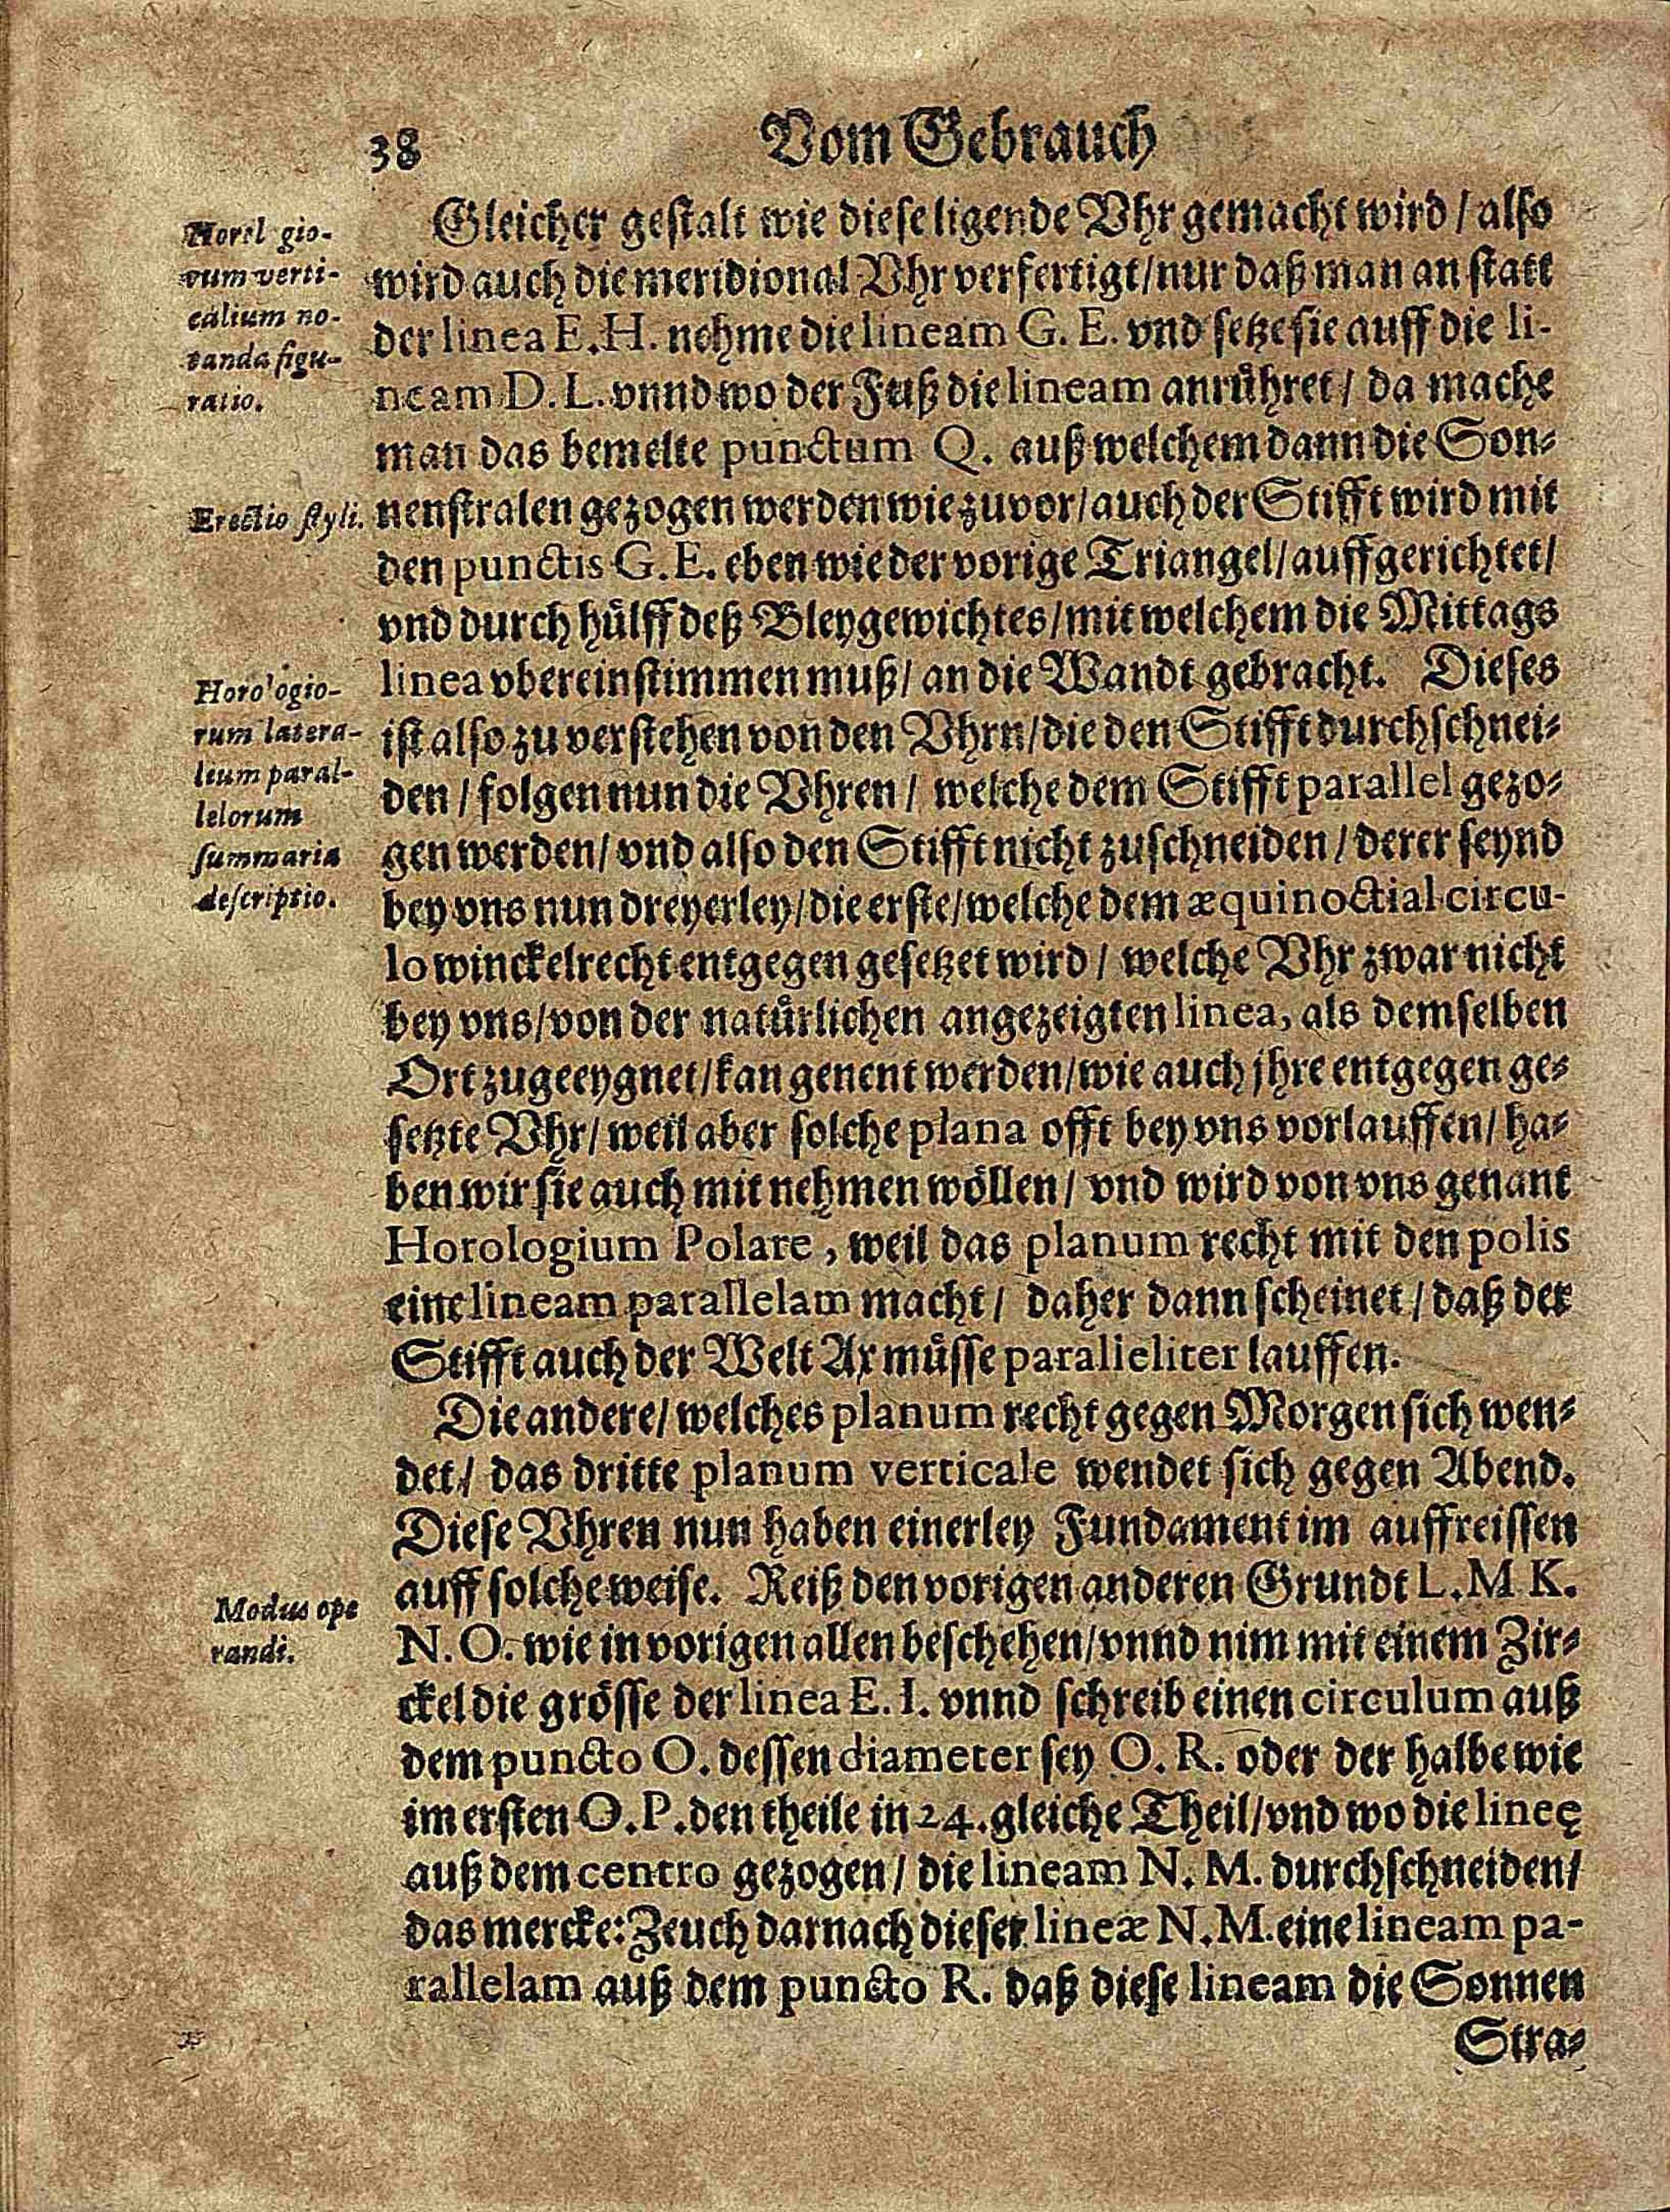 38
Vom Gebrauch
Horol gio-
rum verti-
calium no-
tanda figu-
ratio.
Gleicher gestalt wie diese ligende Vhr gemacht wird / also
wird auch die meridional Vhr verfertigt / nur daß man an statt
der linea E. H. nehme die lineam G. E. vnd setze sie auff die li-
neam D. L. vnnd wo der Fuß die lineam anrühret / da mache
man das bemelte punctum Q. auß welchem dann die Son-
Erectio styli.
nenstralen gezogen werden wie zuvor / auch der Stifft wird mit
den punctis G. E. eben wie der vorige Triangel / auffgerichtet /
vnd durch hülff deß Bleygewichtes / mit welchem die Mittags
Horologio-
rum latera-
lium paral-
lelorum
summaria
descriptio.
linea vbereinstimmen muß / an die Wandt gebracht. Dieses
ist also zu verstehen von den Vhrn / die den Stifft durchschnei-
den / folgen nun die Vhren / welche dem Stifft parallel gezo-
gen werden / vnd also den Stifft nicht zuschneiden / derer seynd
bey vns nun dreyerley / die erste / welche dem æquinoctial circu-
lo winckelrecht entgegen gesetzet wird / welche Vhr zwar nicht
bey vns / von der natürlichen angezeigten linea, als demselben
Ort zugeeygnet / kan genent werden / wie auch jhre entgegen ge-
setzte Vhr / weil aber solche plana offt bey vns vorlauffen / ha-
ben wir sie auch mit nehmen wöllen / vnd wird von vns genant
Horologium Polare, weil das planum recht mit den polis
eine lineam parallelam macht / daher dann scheinet / daß der
Stifft auch der Welt Ax müsse paralleliter lauffen.
Die andere / welches planum recht gegen Morgen sich wen-
det / das dritte planum verticale wendet sich gegen Abend.
Diese Vhren nun haben einerley Fundament im auffreissen
Modus ope
randi.
auff solche weise. Reiß den vorigen anderen Grundt L. M K.
N. O. wie in vorigen allen beschehen / vnnd nim mit einem Zir-
ckel die grösse der linea E. I. vnnd schreib einen circulum auß
dem puncto O. dessen diameter sey O. R. oder der halbe wie
im ersten O. P. den theile in 24. gleiche Theil / vnd wo die lineę
auß dem centro gezogen / die lineam N. M. durchschneiden /
das mercke: Zeuch darnach dieser lineæ N. M. eine lineam pa-
rallelam auß dem puncto R. daß diese lineam die Sonnen
Stra-